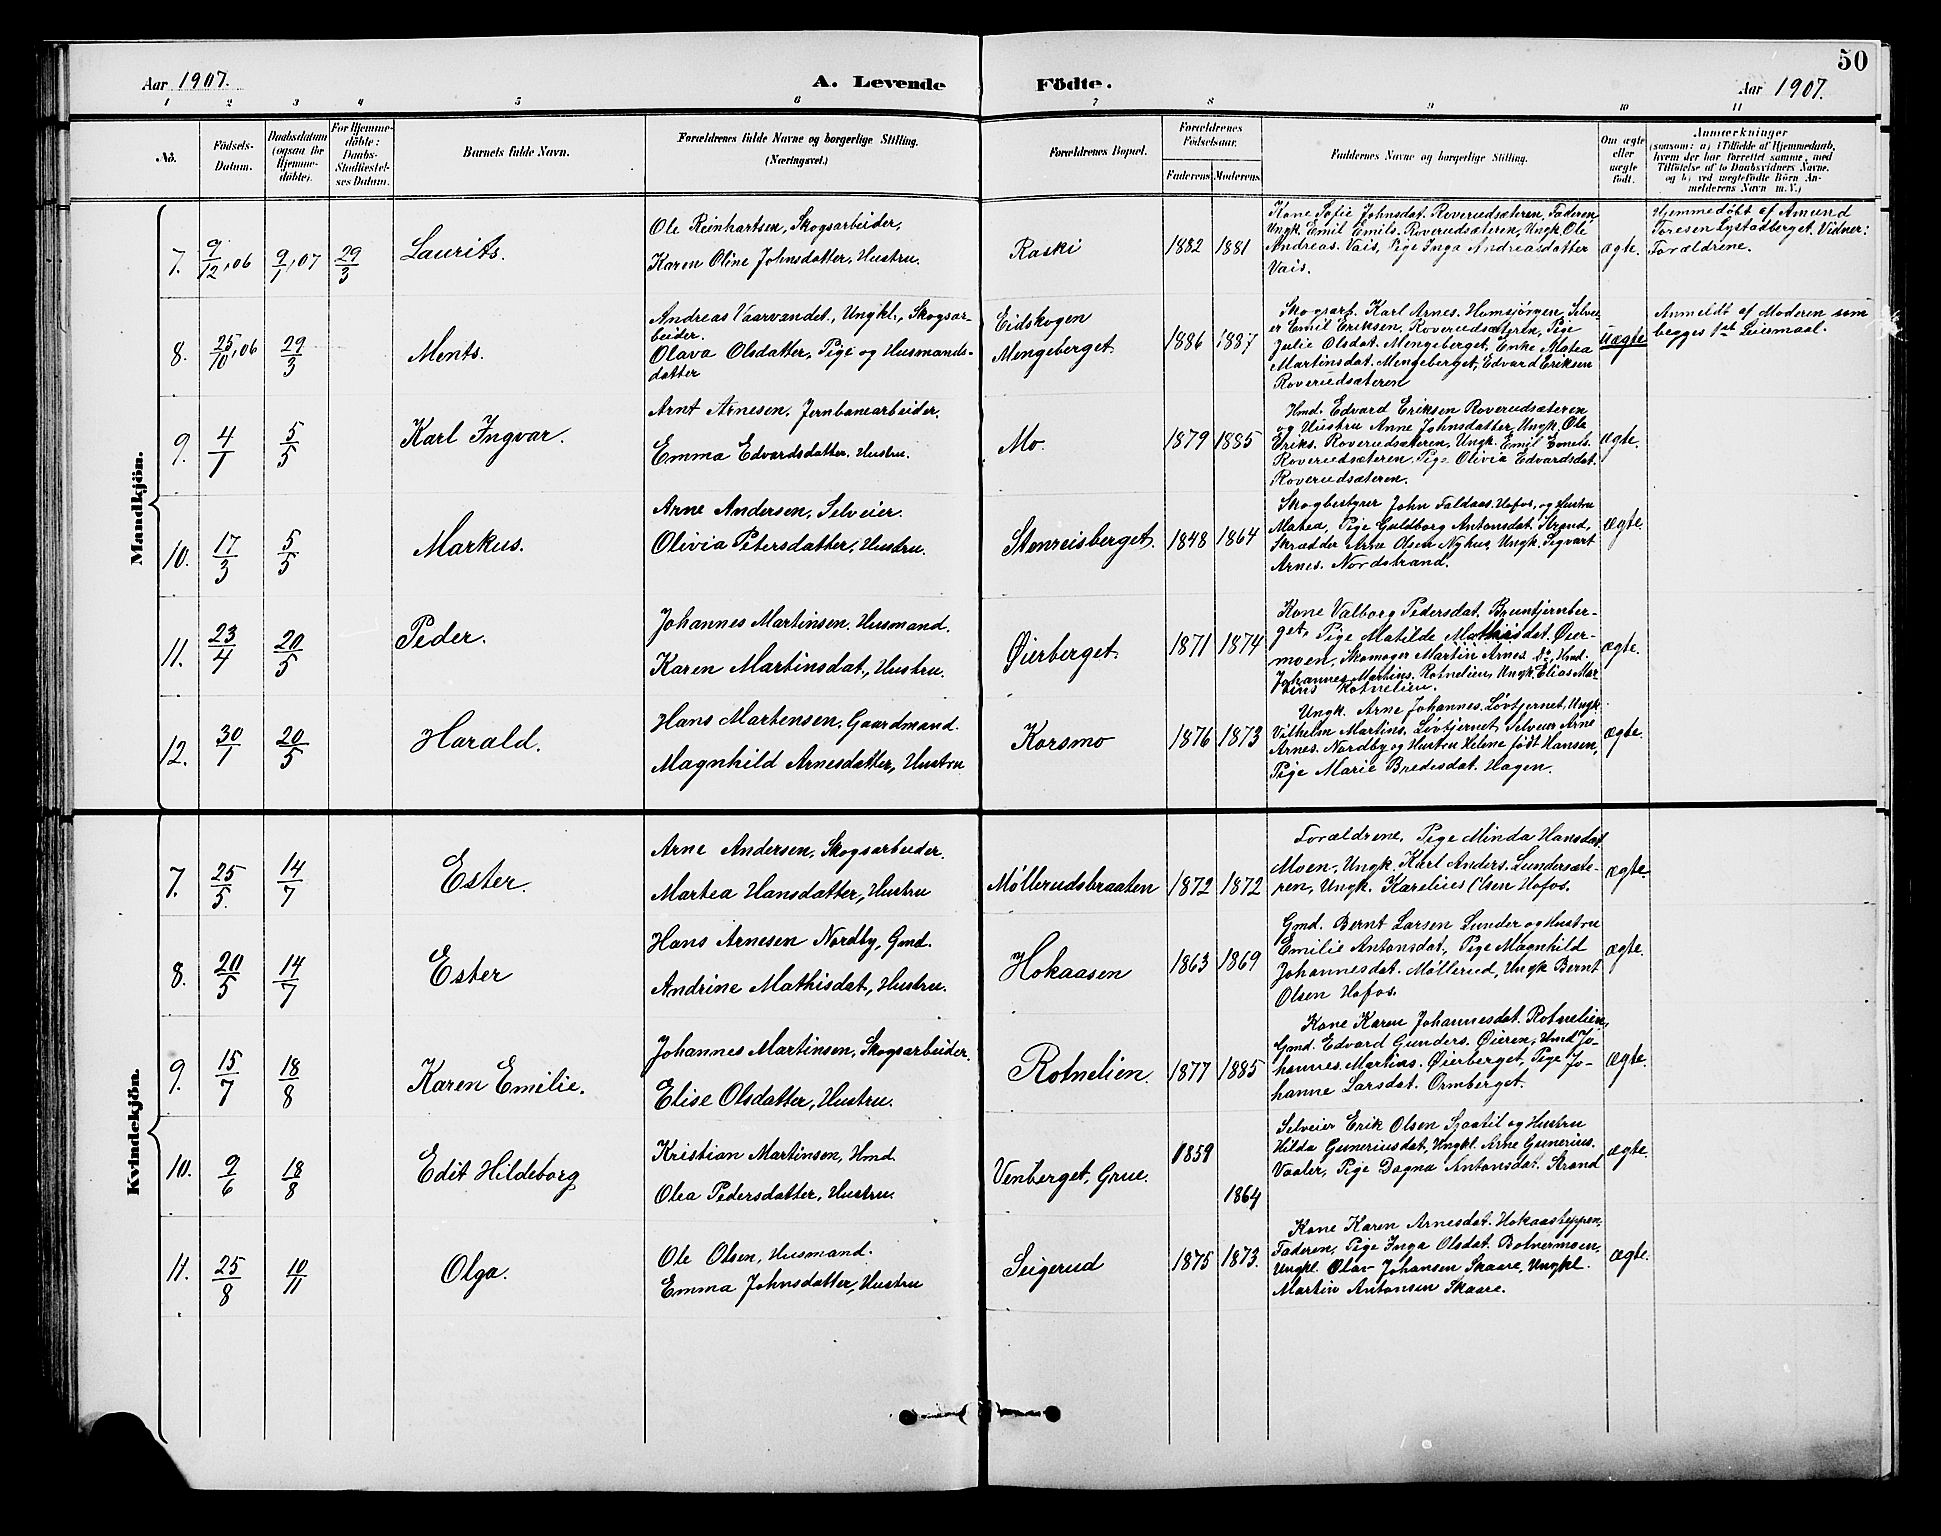 50
Aar 1907. A. Levende Födte. Aar 1907.
1 2 3 4 5 6 7 8 9 10 11
No. Födsels-Datum. Daabsdatum (ogsaa for Hjemmedöbte). For Hjemmedöbte: Daabs-Stadfæstelses Datum. Barnets fulde Navn. Forældrenes fulde Navne og borgerlige Stilling. (Næringsvei.) Forældrenes Bopæl. Forældrenes Födselsaar. Faderens Moderens Faddernes Navne og borgerlige Stilling. Om ægte eller uægte født. Anmærkninger
(saasom: a) i Tilfælde af Hjemmedaab,
hvem der har forrettet samme, med
Tilföielse af to Daabsvidners Navne.
og b) ved uægtefödte Börn An-
melderens Navn m. V.)
Mandkjön.
7. 9/12, 06 9/1, 07 29/3 Laurits.
Ole Reinhartsen, Skogsarbeider,
Karen Oline Johnsdatter, Hustru.
Raski 1882 1881
Kone Sofie Johnsdat. Roverudsæteren, Faderen
Ungk. Emil Emils. Roverudsæteren, Ungk. Ole
Andreas. Vais, Pige Inga Andreasdatter
Vais.
ægte.
Hjemmedöbt af Amund
Toresen Lystadberget. Vidner:
Forældrene.
8. 25/10, 06 29/3 Ments.
Andreas Vaarvandet, Ungkl., Skogsar-
beider.
Olava Olsdatter, Pige og Husmands-
datter
Eidskogen
Mengeberget. 1886 1887
Skogsarb. Karl Arnes. Homsjørgen, Selvei-
er Emil Eriksen, Roverudsæteren, Pige
Julie Olsdat. Mengeberget, Enke Matea
Martinsdat. Mengeberget, Edvard Eriksen
Roverudsæteren
Uægte
Anmeldt af Moderen som
begges 1ste Leiermaal.
9. 4/1 5/5 Karl Ingvar.
Arnt Arnesen, Jernbanearbeider.
Emma Edvardsdatter, Hustru.
Mo. 1879 1885
Hmd. Edvard Eriksen Roverudsæteren
og Hustru Anne Johnsdatter, Ungk. Ole
Eriks. Roverudsæteren, Ungk. Emil Emils.
Roverudsæteren, Pige Olivia Edvardsdat.
Roverudsæteren.
ægte.
10. 17/3 5/5 Markus.
Arne Andersen, Selveier.
Olivia Petersdatter, Hustru.
Stenreisberget. 1848 1864
Skogbestyrer John Faldaas Hofos, og Hustru
Matea, Pige Guldborg Antonsdat. Strand,
Skrædder Arne Olsen Nyhus, Ungk. Sigvart
Arnes. Nordstrand.
ægte.
11. 23/4 20/5 Peder.
Johannes Martinsen. Husmand.
Karen Martinsdat, Hustru.
Øierberget. 1871 1874
Kone Valborg Pedersdat. Bruntjernber-
get, Pige Matilde Mathisdat. Øier-
moen, Skomager Martin Arnes. Hmd.
Johannes Martins. Rotnelien, Ungk. Elias Mar
tins Rotnelien.
ægte.
12. 30/1 20/5 Harald.
Hans Martensen, Gaardmand.
Magnhild Arnesdatter, Hustru
Korsmo 1876 1873
Ungk. Arne Johannes. Løvtjernet, Ungk.
Vilhelm Martins. Løvtjernet, Selveier Arne
Arnes. Nordby og Hustru Helene født Hansen,
Pige Marie Bredesdat. Hagen.
ægte.
Kvindekjön.
7. 25/5. 14/7 Ester.
Arne Andersen, Skogsarbeider.
Martea Hansdatter, Hustru
Møllerudsbraaten 1872 1872
Forældrene, Pige Minda Hansdat.
Moen, Ungk. Karl Anders. Lundersæte-
ren, Ungk. Karelius Olsen Hofos.
ægte.
8. 20/5 14/7 Ester
Hans Arnesen Nordby, Gmd.
Andrine Mathisdat, Hustru.
Hokaasen 1863 1869
Gmd. Bernt Larsen Lunder og Hustru
Emilie Antonsdat, Pige Magnhild
Johannesdat. Møllerud, Ungk Bernt
Olsen Hofos.
ægte.
9. 15/7 18/8 Karen Emilie.
Johannes Martinsen, Skogsarbeider.
Elise Olsdatter, Hustru.
Rotnelien. 1877 1885
Kone Karen Johannesdat. Rotnelien,
Gmd. Edvard Gunders. Øieren, Hmd. Jo-
hannes. Martins. Øierberget, Pige Jo-
hanne Larsdat. Ormberget.
ægte.
10. 9/6 18/8 Edit Hildeborg
Kristian Martinsen, Hmd.
Olea Pedersdatter, Hustru.
Venberget, Grue. 1859 1864
Selveier Erik Olsen Sjaatil og Hustru
Hilda Guneriusdat, Ungkl. Arne Gunerius.
Vaaler, Pige Dagna Antonsdat. Strand
ægte.
11. 25/8 10/11 Olga.
Ole Olsen, Husmand.
Emma Johnsdatter, Hustru
Seigerud 1875 1873.
Kone Karen Arnesdat. Hokaasteppen,
Faderen, Pige Inga Olsdat. Botnermoen,
Ungkl. Olav Johansen Skaare, Ungkl.
Martin Antonsen Skaare.
ægte.